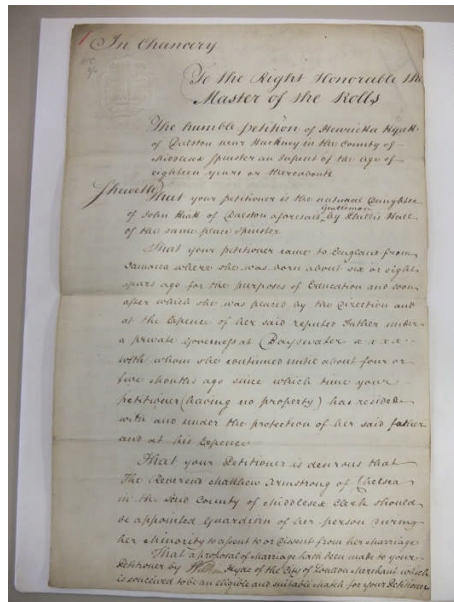 In Chancery
To the Right Honorable the
Master of the Rolls
The humble petition of Henrietta
of Dalston near Hackney in the County of
Middlesex Spinster an Infant of the age of
eighteen years or thereabouts
Sheweth
That your petitioner is the natural Daughter
Gentleman
of John of Dalston aforesaid by Phillis Wall
of the same place Spinster
That your petitioner came to England from
Jamaica where she was born about six or eight
years ago for the purposes of Education and soon
after which she was placed by the Direction and
at the Expence of her said reputed Father under
a private Governess at Bayswater
with whom she continued until about four or
five Months ago since which time your
petitioner (having no property) has resided
with and under the protection of her said father
and at his Expence
That your Petitioner is desirous that
The Reverend Matthew Armstrong of Chelsea
in the said County of Middlesex Clerk should
be appointed Guardian of her person during
her Minority to assent to or Dissent from her Marriage
That a proposal of Marriage hath been made to your
Petitioner by Hyde of the City of London Merchant which
is conceived to be an eligible and suitable Match for your Petitioner